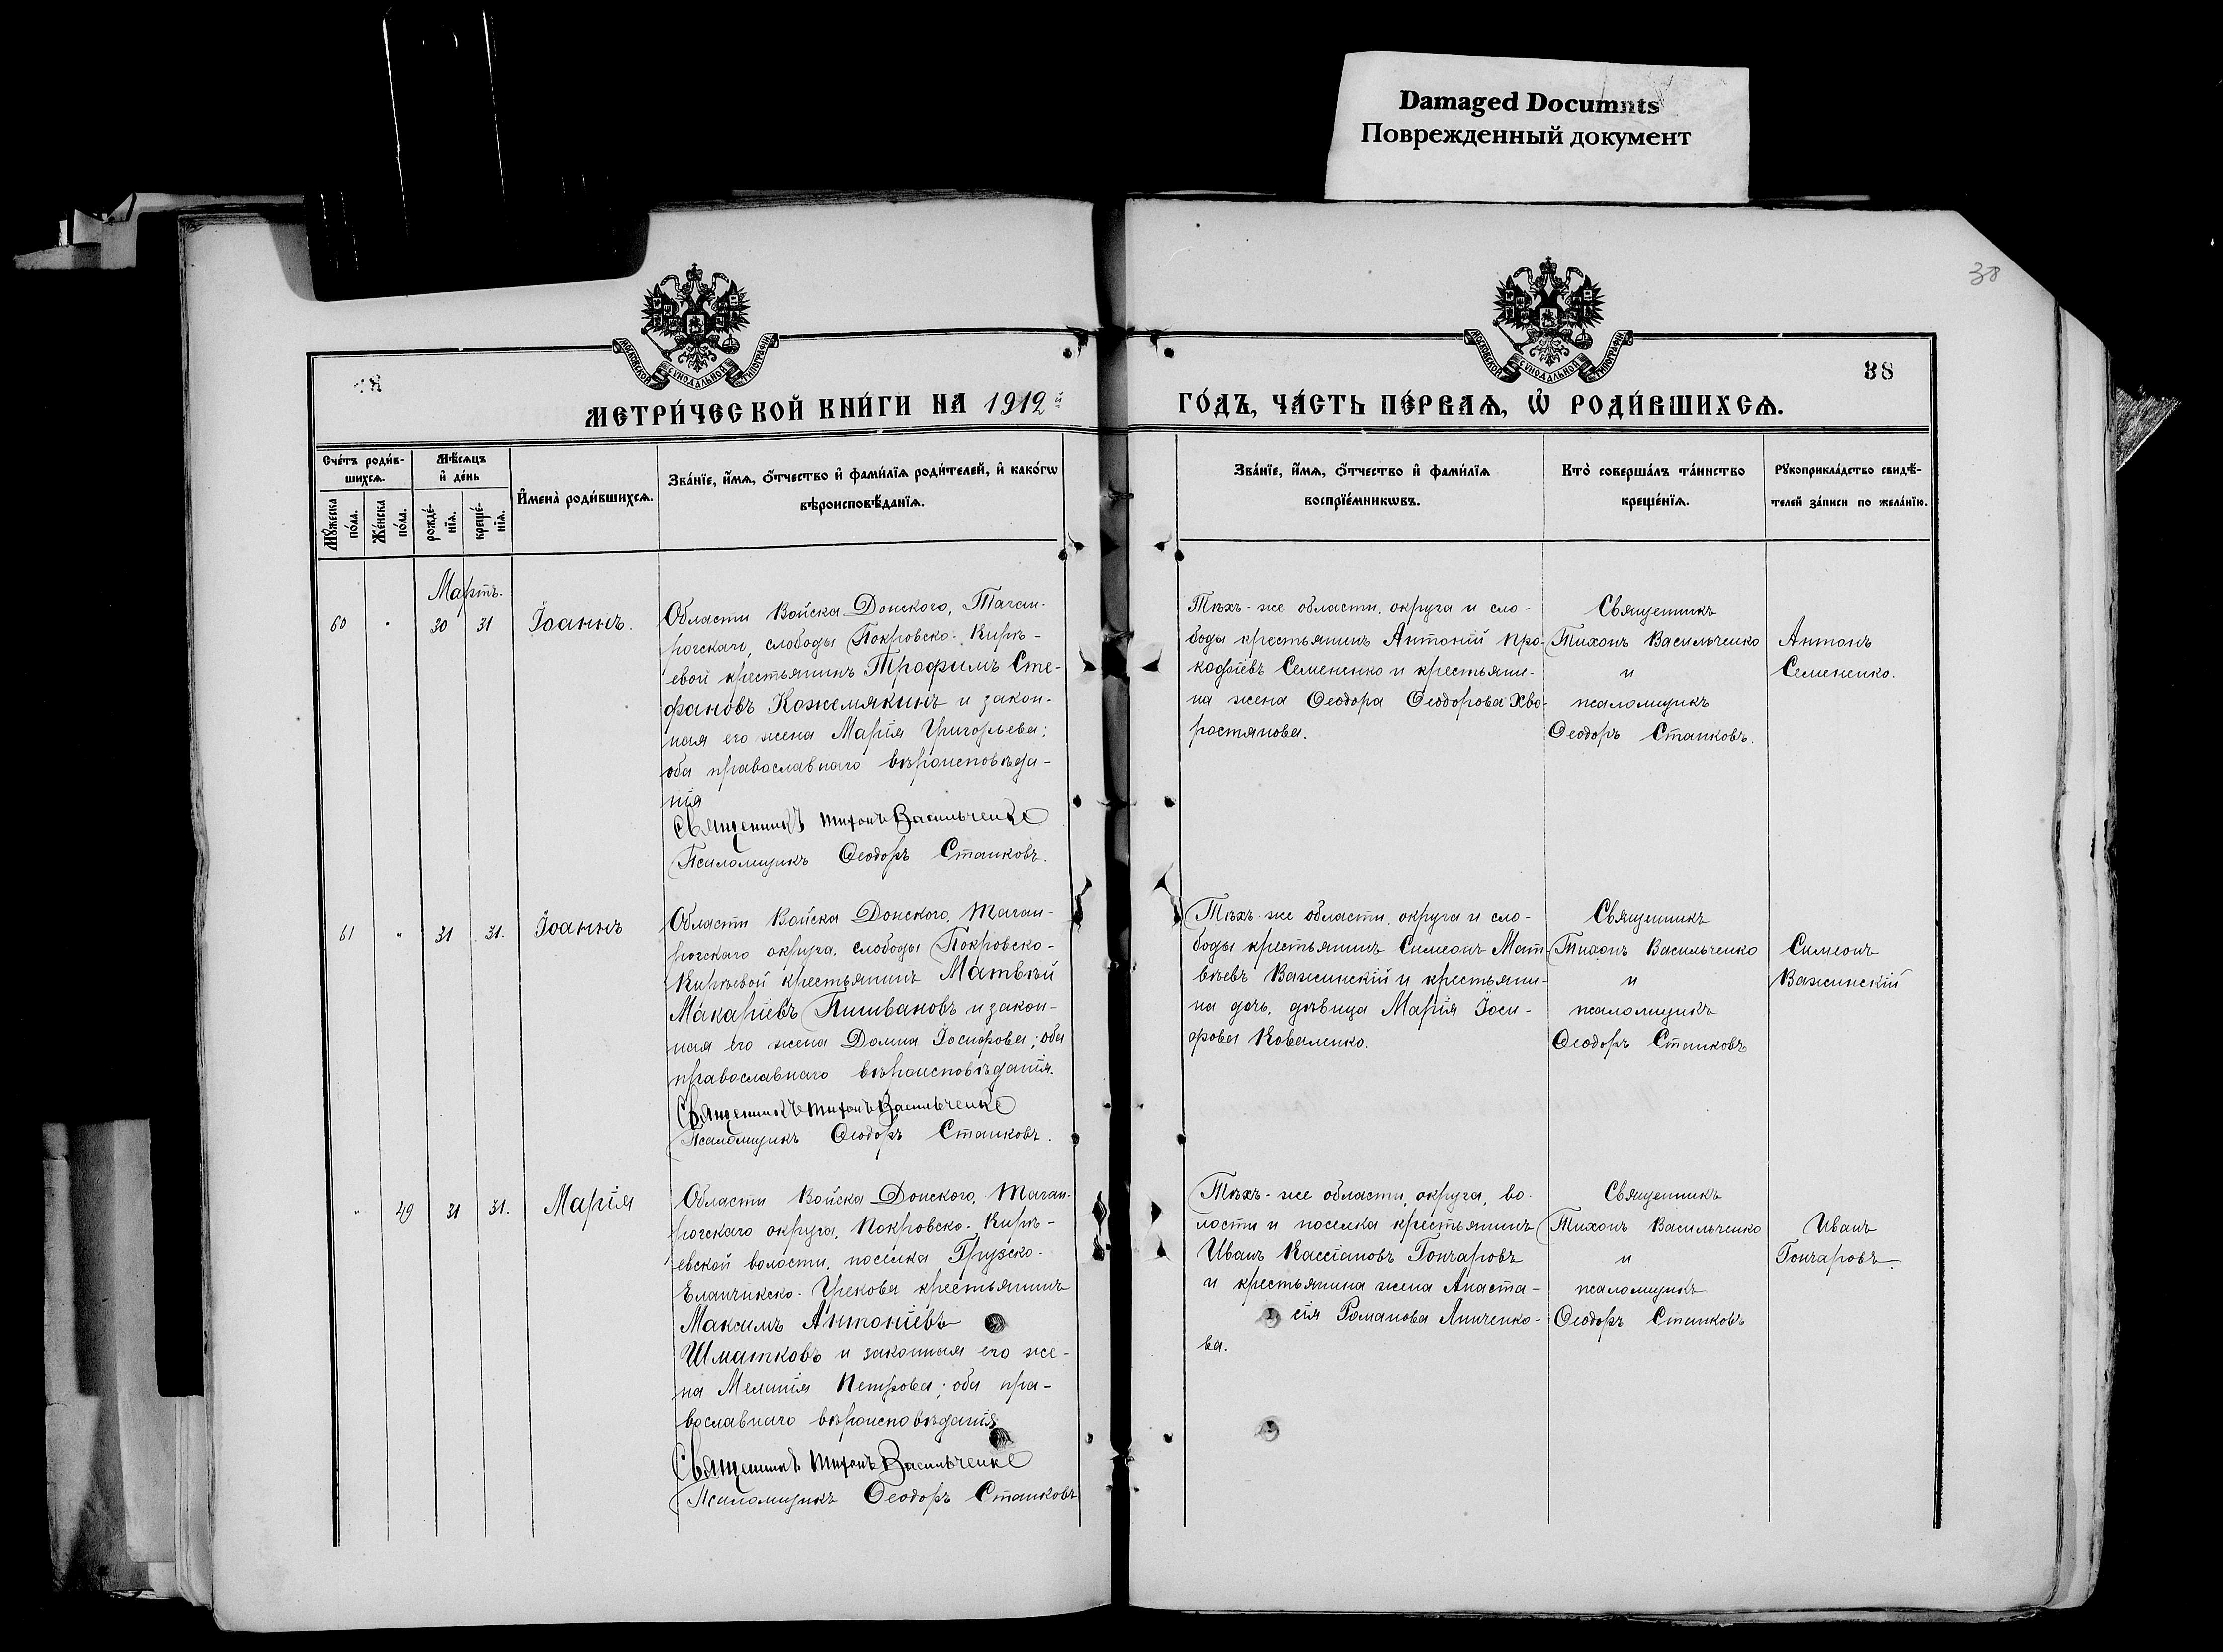 Damaged Documnts
Поврежденный документ
38
МОСКОВСКОЙ СѴНОДАЛЬНОЙ ТИПОГРАФІИ
МОСКОВСКОЙ СѴНОДАЛЬНОЙ ТИПОГРАФІИ
38
МЕТРИ́ЧЕСКОЙ КНИ́ГИ НА 1912й
ГО́ДЪ, ЧА́СТЬ ПЕ́РВАѦ, Ѡ҆ РОДИ́ВШИХСѦ.
Сче́тъ роди́в-
шихсѧ.
Мꙋ́жеска по́ла.
Же́нска по́ла.
Мѣ́сѧцъ
и҆ де́нь
рожде́-
нїѧ.
креще́-
нїѧ.
И҆мена̀ роди́вшихсѧ.
Зва́нїе, и҆́мѧ, ѻ҆́тчество и҆ фами́лїѧ роди́телей, и҆ како́гѡ
вѣроисповѣ́данїѧ.
Зва́нїе, и҆́мѧ, ѻ҆́тчество и҆ фами́лїѧ
воспрїе́мникѡвъ.
Кто̀ соверша́лъ та́инство
креще́нїѧ.
Рꙋкоприкла́дство свидѣ́-
телей за́писи по жела́нїю.
Мартъ.
60 " 30 31 Іоаннъ.
Области Войска Донского, Таган-
рогскаго, слободы Покровско-Кирѣ-
евой крестьянинъ Трофимъ Сте-
фановъ Кожемякинъ и закон-
ная его жена Марія Григорьева;
оба православнаго вѣроисповѣда-
нія
Священникъ Тихонъ Васильченко
Псаломщикъ Ѳеодоръ Станковъ.
Тѣхъ-же области, округа и сло-
боды крестьянинъ Антоній Про-
кофіевъ Семененко и крестьяни-
на жена Ѳеодора Ѳеодорова Хво-
ростянова.
Священникъ
Тихонъ Васильченко
и
псаломщикъ
Ѳеодоръ Станковъ.
Антонъ
Семененко.
61 " 31 31. Іоаннъ
Области Войска Донского, Таган-
рогскаго округа, слободы Покровско-
Кирѣевой крестьянинъ Матвѣй
Макаріевъ Пишвановъ и закон-
ная его жена Домна Іосифова; оба
православнаго вѣроисповѣданія.
Священникъ Тихонъ Васильченко
Псаломщикъ Ѳеодоръ Станковъ.
Тѣхъ-же области, округа и сло-
боды крестьянинъ Симеонъ Мат-
вѣевъ Важинскій и крестьяни-
на дочь, дѣвица Марія Іоси-
фова Коваленко.
Священникъ
Тихонъ Васильченко
и
псаломщикъ
Ѳеодоръ Станковъ
Симеонъ
Важинскій
" 49 31 31. Марія
Области Войска Донского, Таган-
рогскаго округа, Покровско-Кирѣ-
евской волости, поселка Грузско-
Еланчикско-Грекова крестьянинъ
Максимъ Антоніевъ
Шматковъ и законная его же-
на Меланія Петрова; оба пра-
вославнаго вѣроисповѣданія
Священникъ Тихонъ Васильченко
Псаломщикъ Ѳеодоръ Станковъ
Тѣхъ-же области, округа, во-
лости и поселка крестьянинъ
Иванъ Кассіановъ Гончаровъ
и крестьянина жена Анаста-
сія Романова Линченко-
ва.
Священникъ
Тихонъ Васильченко
и
псаломщикъ
Ѳеодоръ Станковъ
Иванъ
Гончаровъ.